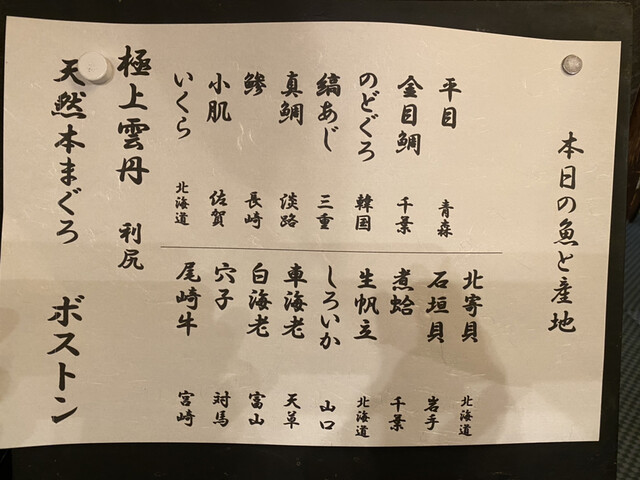 本日の魚と産地
平目 青森
金目鯛 千葉
のどぐろ 韓国
縞あじ 三重
真鯛 淡路
鰺 長崎
小肌 佐賀
いくら 北海道
北寄貝 北海道
石垣貝 岩手
煮蛤 千葉
生帆立 北海道
しろいか 山口
車海老 天草
白海老 富山
穴子 対馬
尾崎牛 宮崎
極上雲丹 利尻
天然本まぐろ ボストン